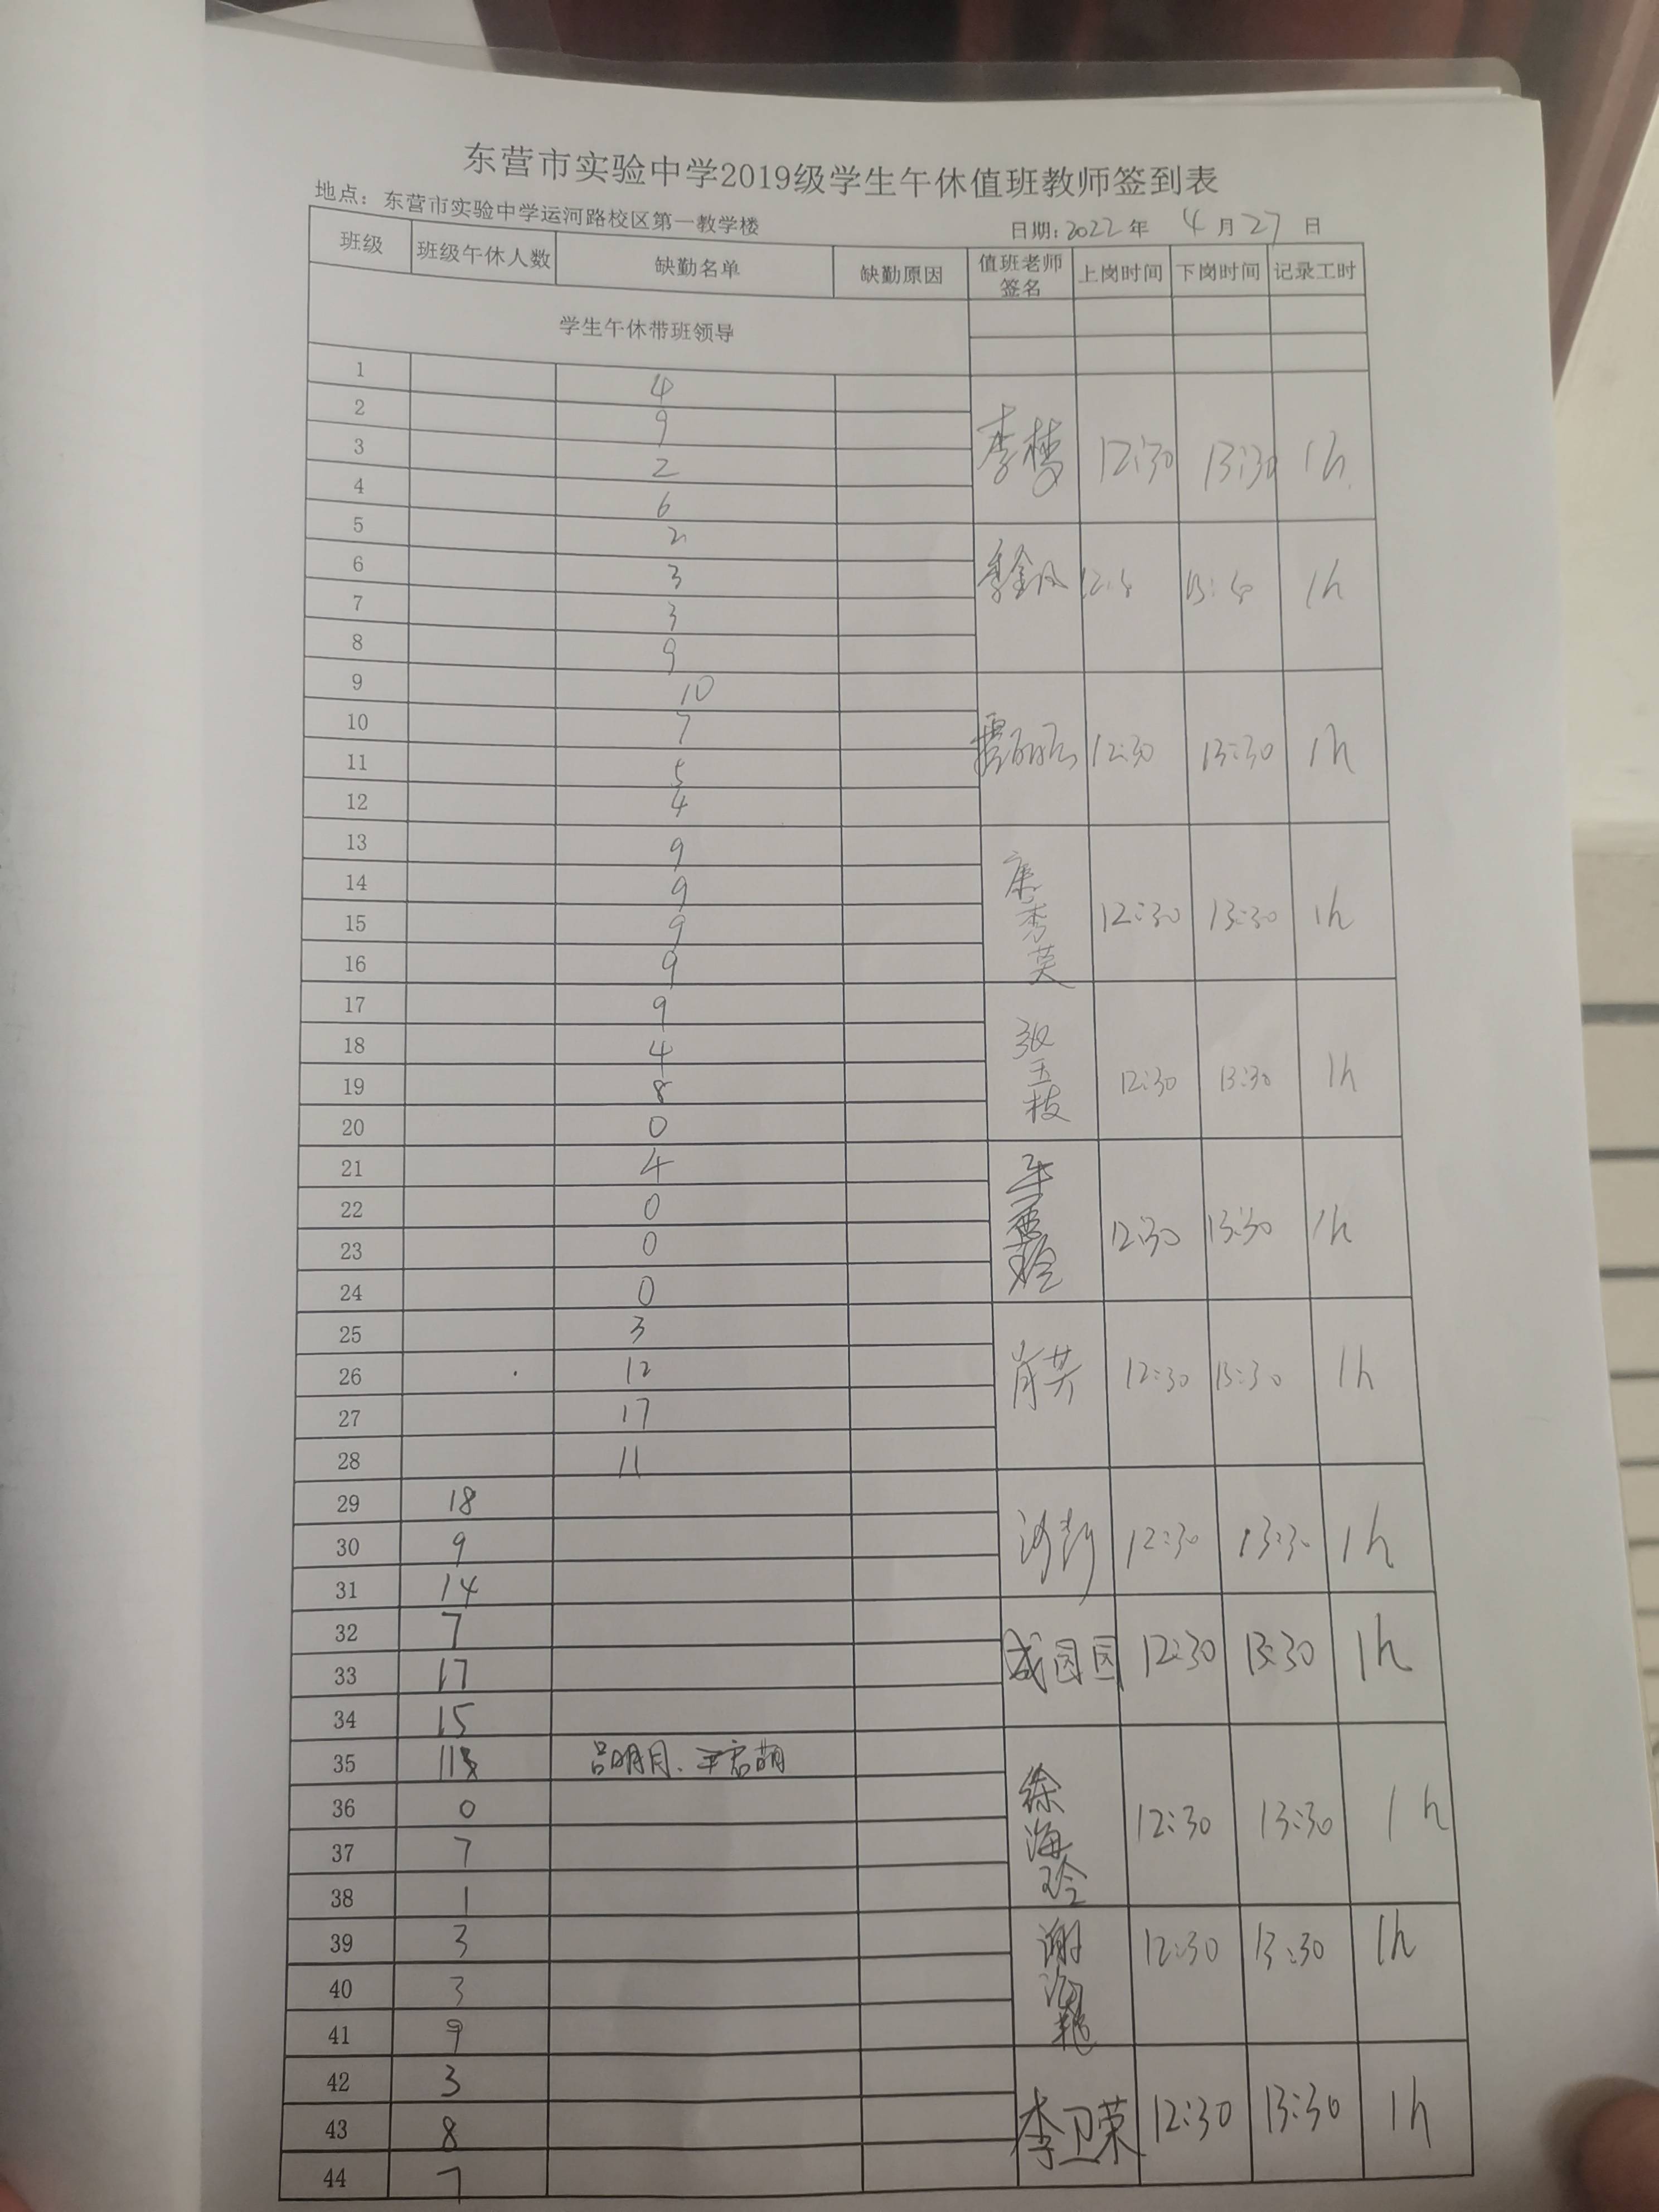 东营市实验中学2019级学生午休值班教师签到表
地点：东营市实验中学运河路校区第一教学楼 日期:2022年 4月27日
班级 班级午休人数 缺勤名单 缺勤原因 值班老师签名 上岗时间 下岗时间 记录工时
学生午休带班领导
1 4
2 9
3 2 李梦 12:30 13:30 1h
4 6
5 2
6 3 1h
7 3
8 9
9 10
10 7
11 5 12:30 13:30 1h
12 4
13 9
14 9
15 9 康秀英 12:30 13:30 1h
16 9
17 9
18 4
19 8 张玉枝 12:30 13:30 1h
20 0
21 4
22 0
23 0 12:30 13:30 1h
24 0
25 3
26 12 肖芳 12:30 13:30 1h
27 17
28 11
29 18
30 9 12:30 13:30 1h
31 14
32 7
33 17 成园园 12:30 13:30 1h
34 15
35 吕明月、王启萌
36 0 徐海玲 12:30 13:30 1h
37 7
38 1
39 3 谢海艳 12:30 13:30 1h
40 3
41 9
42 3
43 8 李卫荣 12:30 13:30 1h
44 7